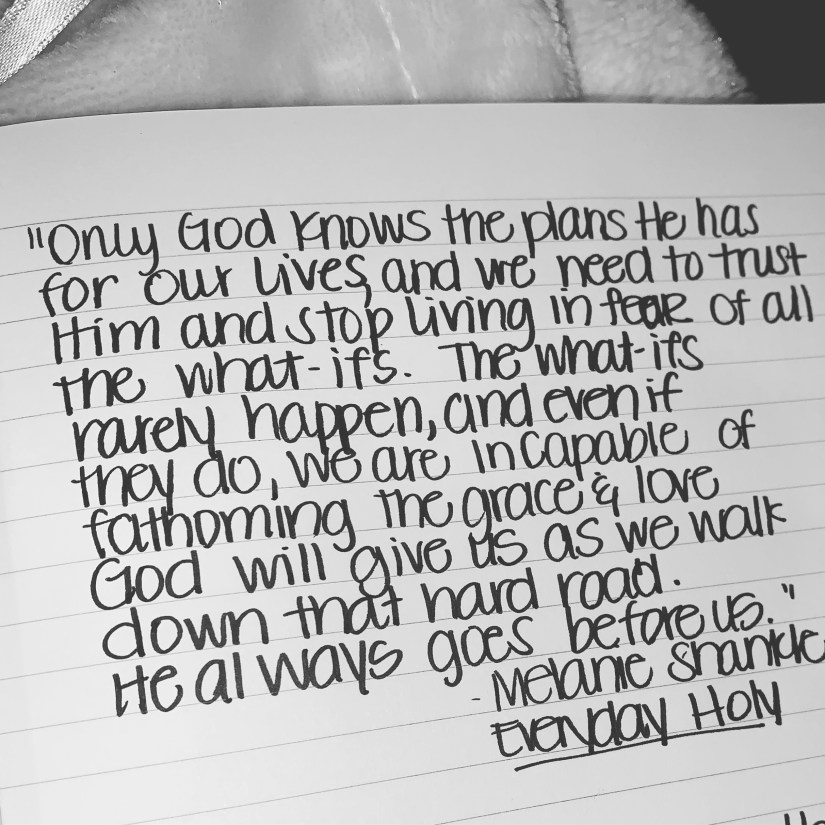 "Only God knows the plans He has
for our lives, and we need to trust
Him and stop living in fear of all
the what-ifs. The what-ifs
rarely happen, and even if
they do, we are incapable of
fathoming the grace & love
God will give us as we walk
down that hard road.
He always goes before us."
- Melanie Shankle
Everyday Holy